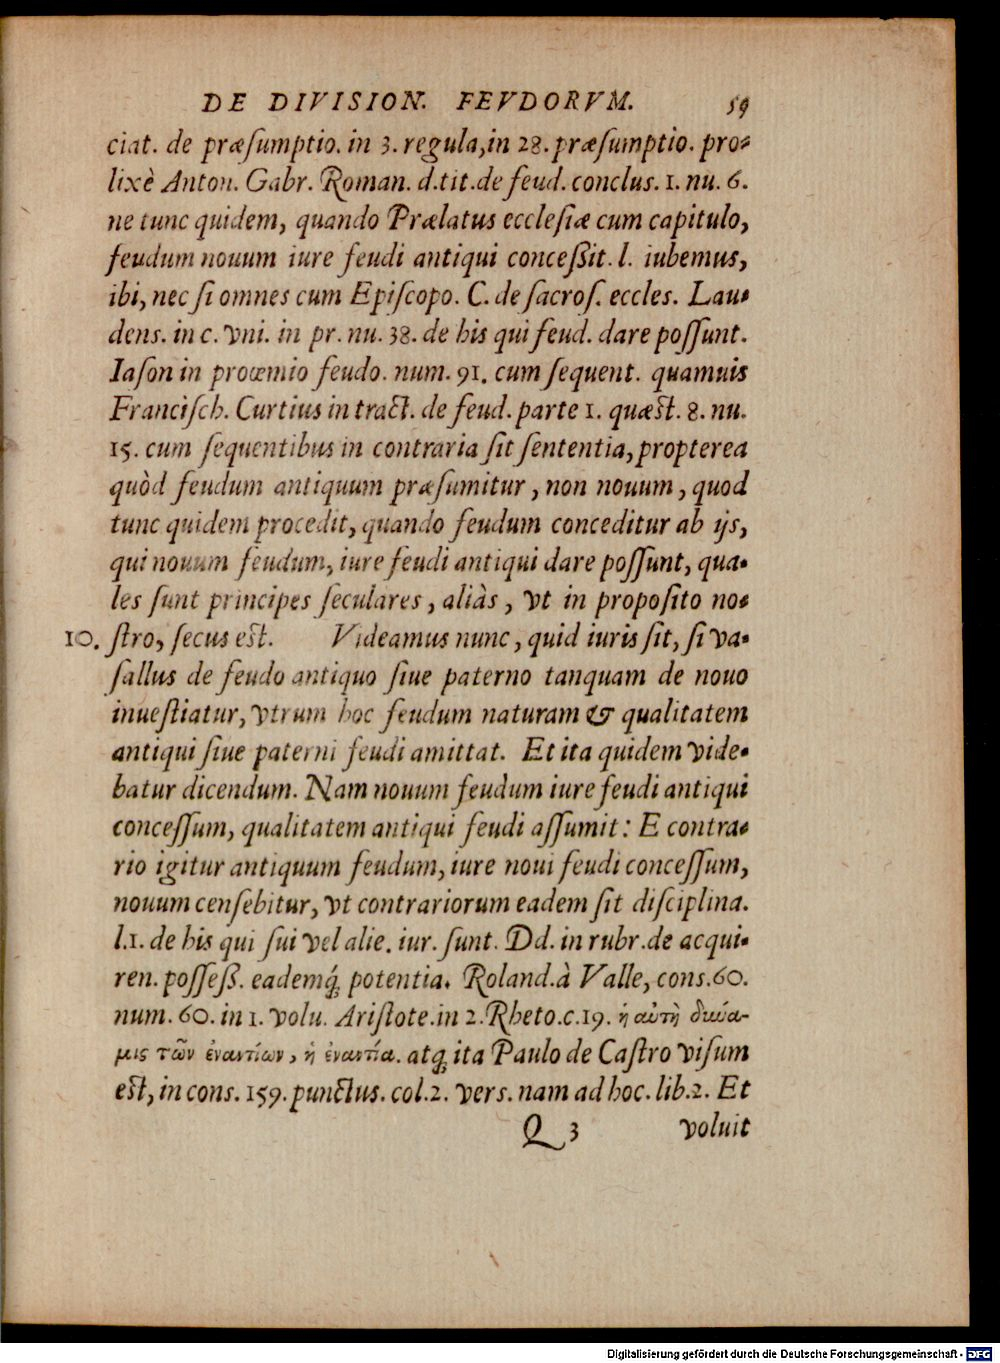 DE DIVISION. FEVDORVM. 59
ciat. de præſumptio. in 3. regula, in 28. præſumptio. pro-
lixè Anton. Gabr. Roman. d.tit.de feud. conclus. 1. nu. 6.
ne tunc quidem, quando Prælatus eccleſiæ cum capitulo,
feudum nouum iure feudi antiqui conceßit. l. iubemus,
ibi, nec ſi omnes cum Epiſcopo. C. de ſacroſ. eccles. Lau-
dens. in c. vni. in pr. nu. 38. de his qui feud. dare poſſunt.
Iaſon in proœmio feudo. num. 91. cum ſequent. quamuis
Franciſch. Curtius in tract. de feud. parte 1. quæst. 8. nu.
15. cum ſequentibus in contraria ſit ſententia, propterea
quòd feudum antiquum præſumitur, non nouum, quod
tunc quidem procedit, quando feudum conceditur ab ijs,
qui nouum feudum, iure feudi antiqui dare poſſunt, qua-
les ſunt principes ſeculares, aliàs, vt in propoſito no-
10. ſtro, ſecus est. Videamus nunc, quid iuris ſit, ſi va-
ſallus de feudo antiquo ſiue paterno tanquam de nouo
inueſtiatur, vtrum hoc feudum naturam & qualitatem
antiqui ſiue paterni feudi amittat. Et ita quidem vide-
batur dicendum. Nam nouum feudum iure feudi antiqui
conceſſum, qualitatem antiqui feudi aſſumit: E contra-
rio igitur antiquum feudum, iure noui feudi conceſſum,
nouum cenſebitur, vt contrariorum eadem ſit diſciplina.
l.1. de his qui ſui vel alie. iur. ſunt. Dd. in rubr.de acqui-
ren. poſſeß. eademq́; potentia. Roland.à Valle, cons.60.
num. 60. in 1. volu. Ariſtote.in 2.Rheto.c.19. ἡ αὐτὴ δύνα-
μις τῶν ἐναντίων, ᾗ ἐναντία. atq; ita Paulo de Caſtro viſum
est, in cons. 159. punctus. col.2. vers. nam ad hoc. lib.2. Et
Q 3 voluit
Digitalisierung gefördert durch die Deutsche Forschungsgemeinschaft - DFG